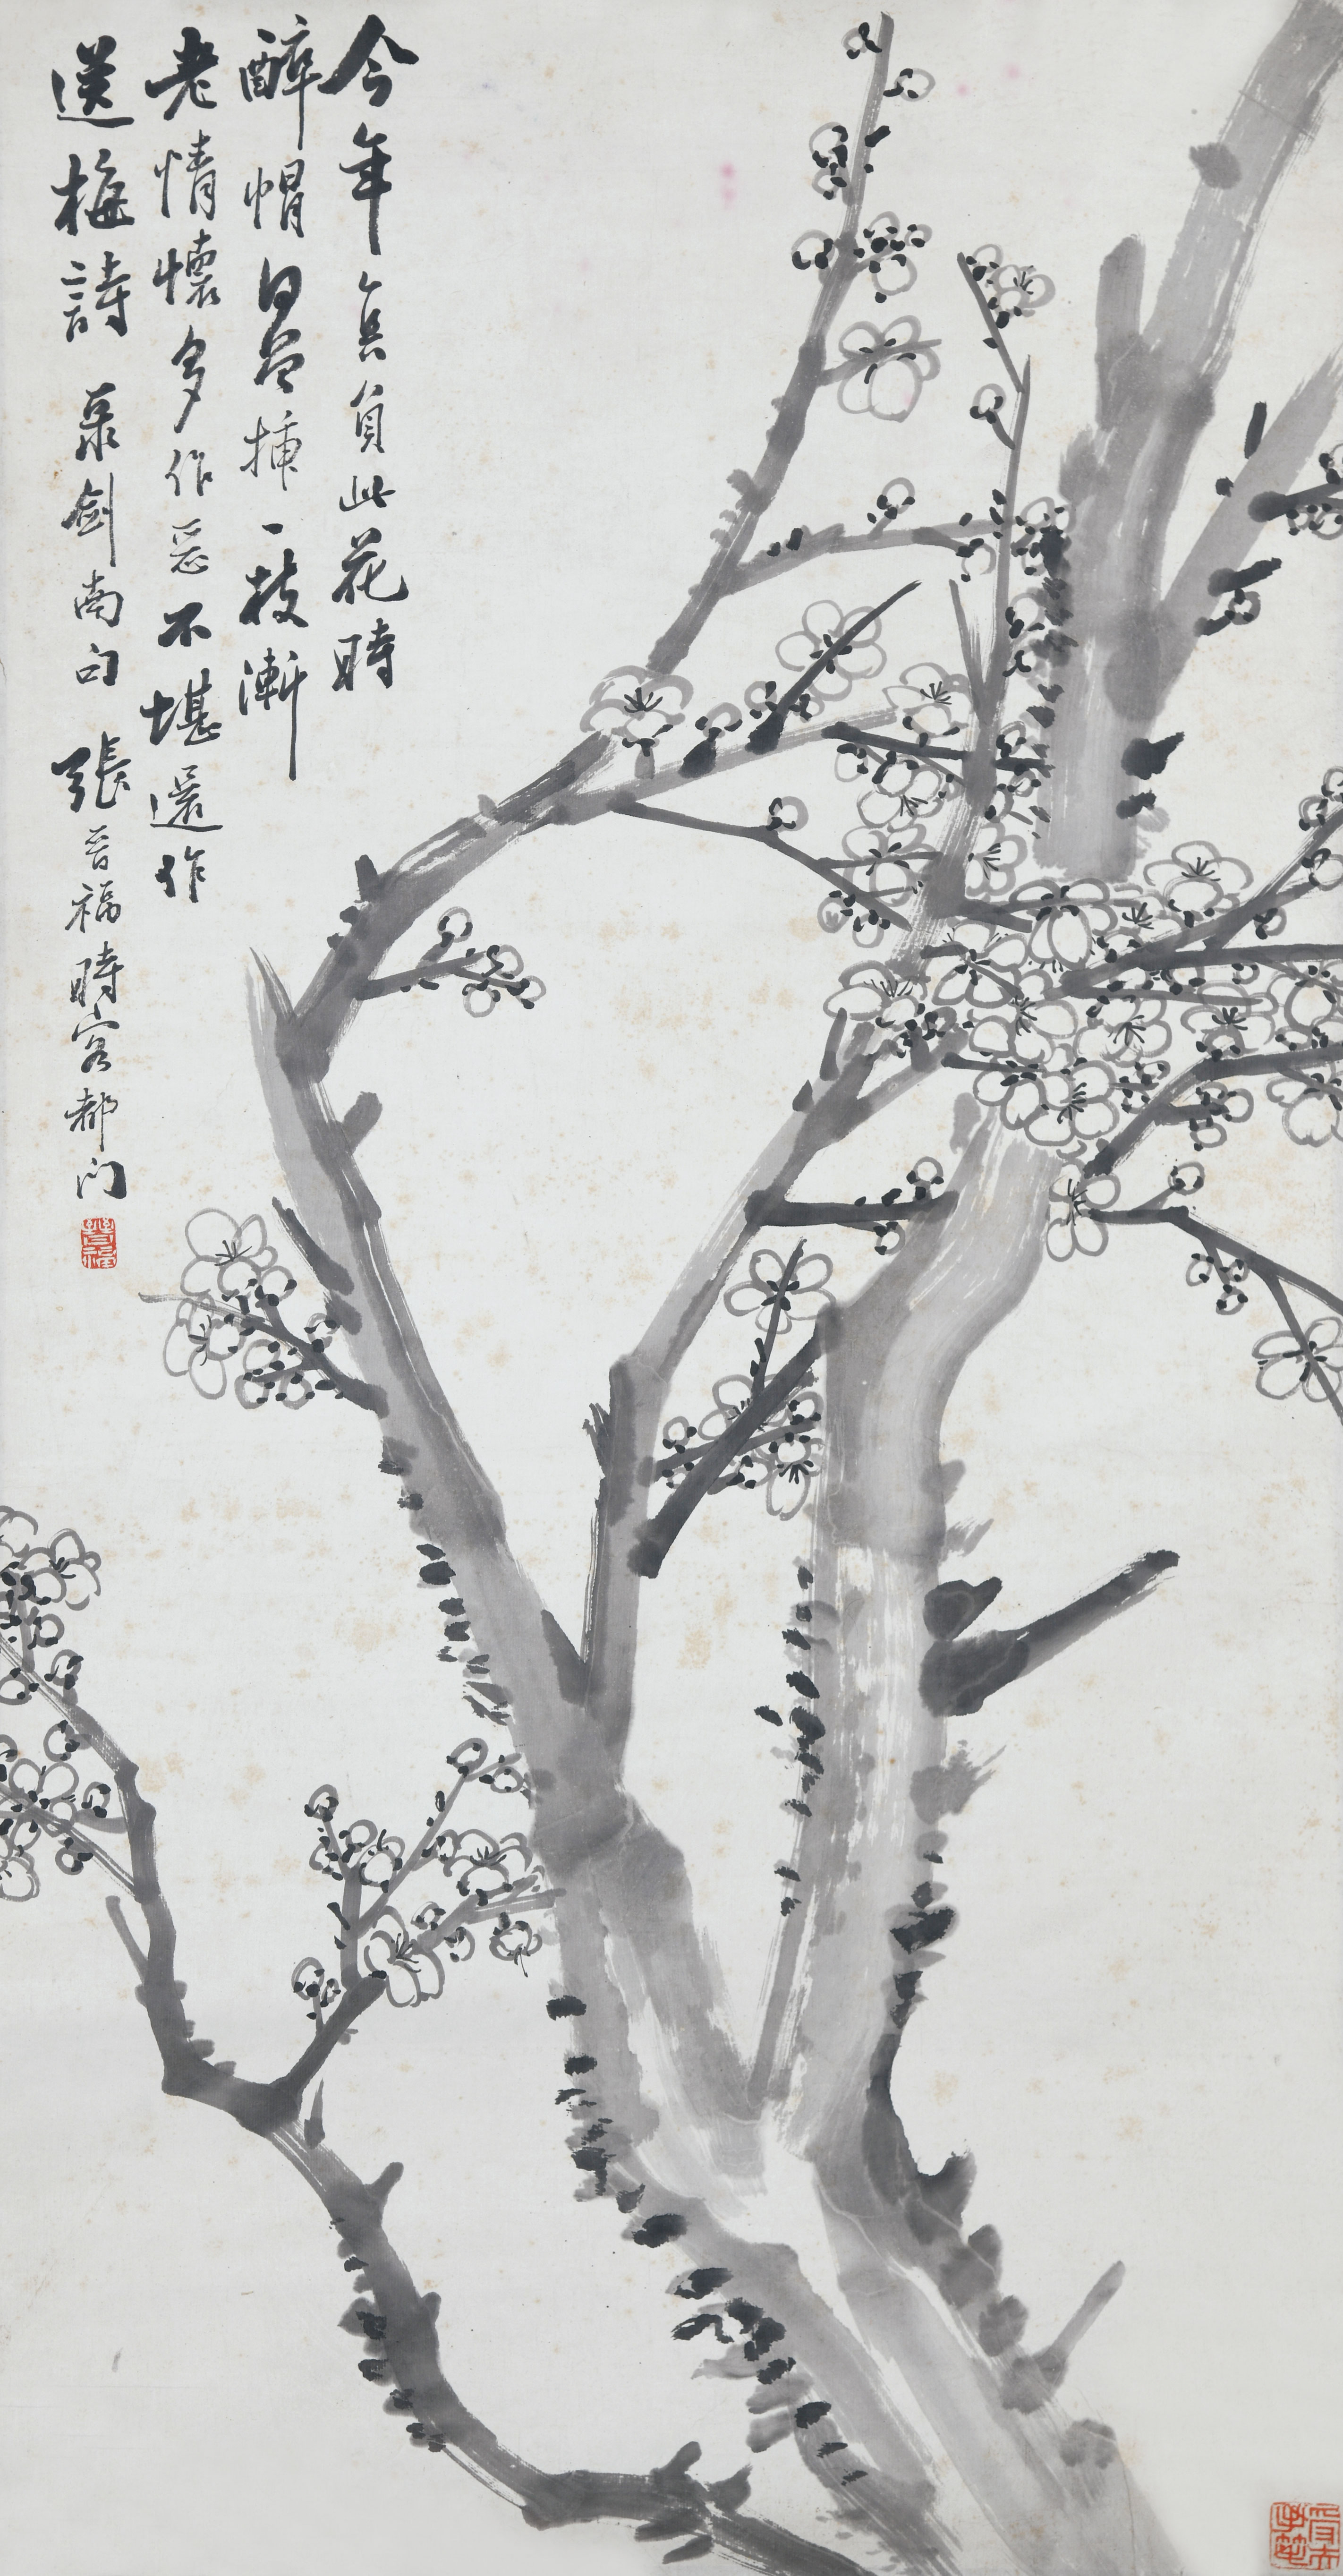 今年真負此花時
醉帽何曾插一枝漸
老情懷多作惡不堪還作
送梅詩 录劍南句 張晉福時客都门
晉福